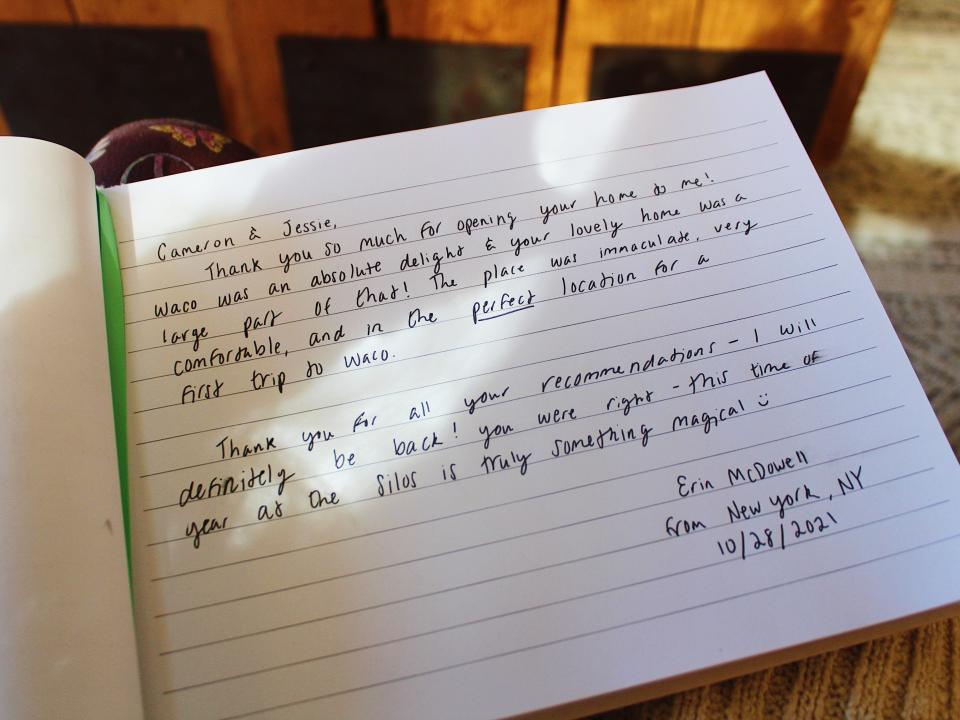 Cameron & Jessie,
Thank you so much for opening your home to me!
Waco was an absolute delight & your lovely home was a
large part of that! The place was immaculate, very
comfortable, and in the perfect location for a
first trip to Waco.
Thank you for all your recommendations - I will
definitely be back! you were right - this time of
year at the Silos is truly something magical ü
Erin McDowell
from New york, NY
10/28/2021